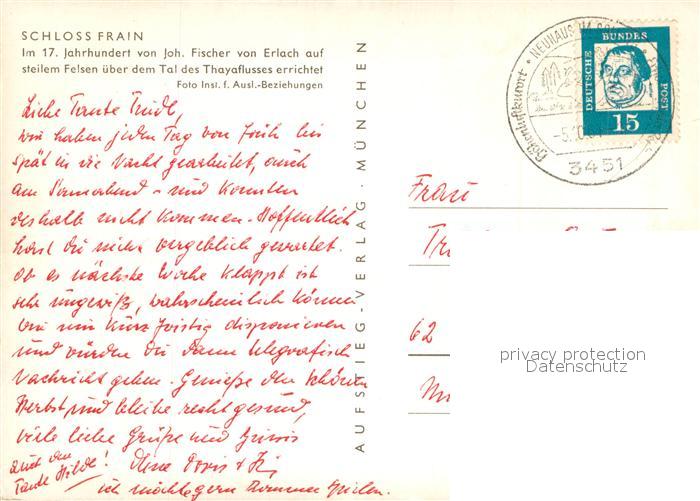 SCHLOSS FRAIN
Im 17. Jahrhundert von Joh. Fischer von Erlach auf
steilem Felsen über dem Tal des Thayaflusses errichtet
Foto Inst. f. Ausl.-Beziehungen
Liebe Tante Trudl,
wir haben jeden Tag von früh bis
spät in die Nacht gearbeitet, auch
am Sonnabend - und konnten
deshalb nicht kommen. Hoffentlich
hast Du nicht vergeblich gewartet.
Ob es nächste Woche klappt ist
sehr ungewiß, wahrscheinlich können
wir nur kurzfristig disponieren
und würden Dir dann telegrafisch
Nachricht geben. Genieße den schönen
Herbst, und bleibe recht gesund,
viele liebe Grüße und
auch von
Tante Hilde! Deine Doris +
ich möchte gern
AUFSTIEG-VERLAG · MÜNCHEN
Höhenluftkurort · NEUHAUS IM
3451
DEUTSCHE BUNDES POST
15
Frau
62
privacy protection
Datenschutz